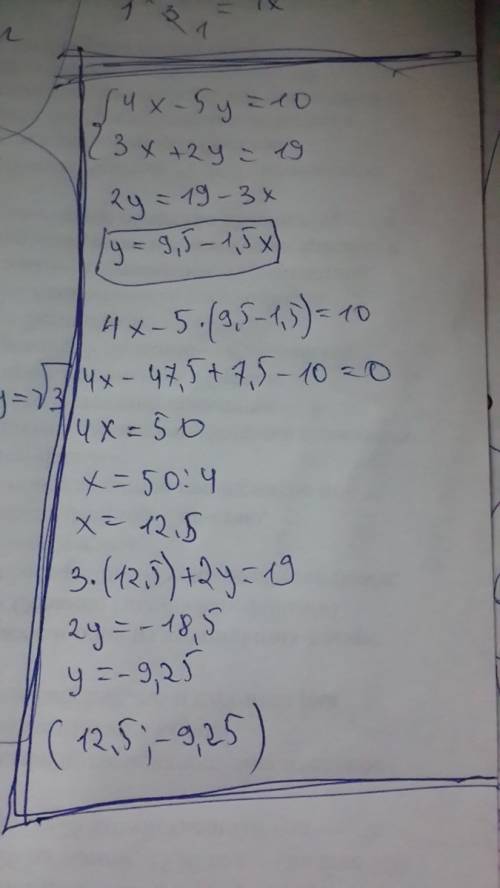 {4x-5y=10
3x+2y=19
2y=19-3x
y=9,5-1,5x
4x-5·(9,5-1,5)=10
4x-47,5+7,5-10=0
y=√3
4x=50
x=50:4
x=12.5
3·(12,5)+2y=19
2y=-18,5
y=-9,25
(12,5;-9,25)